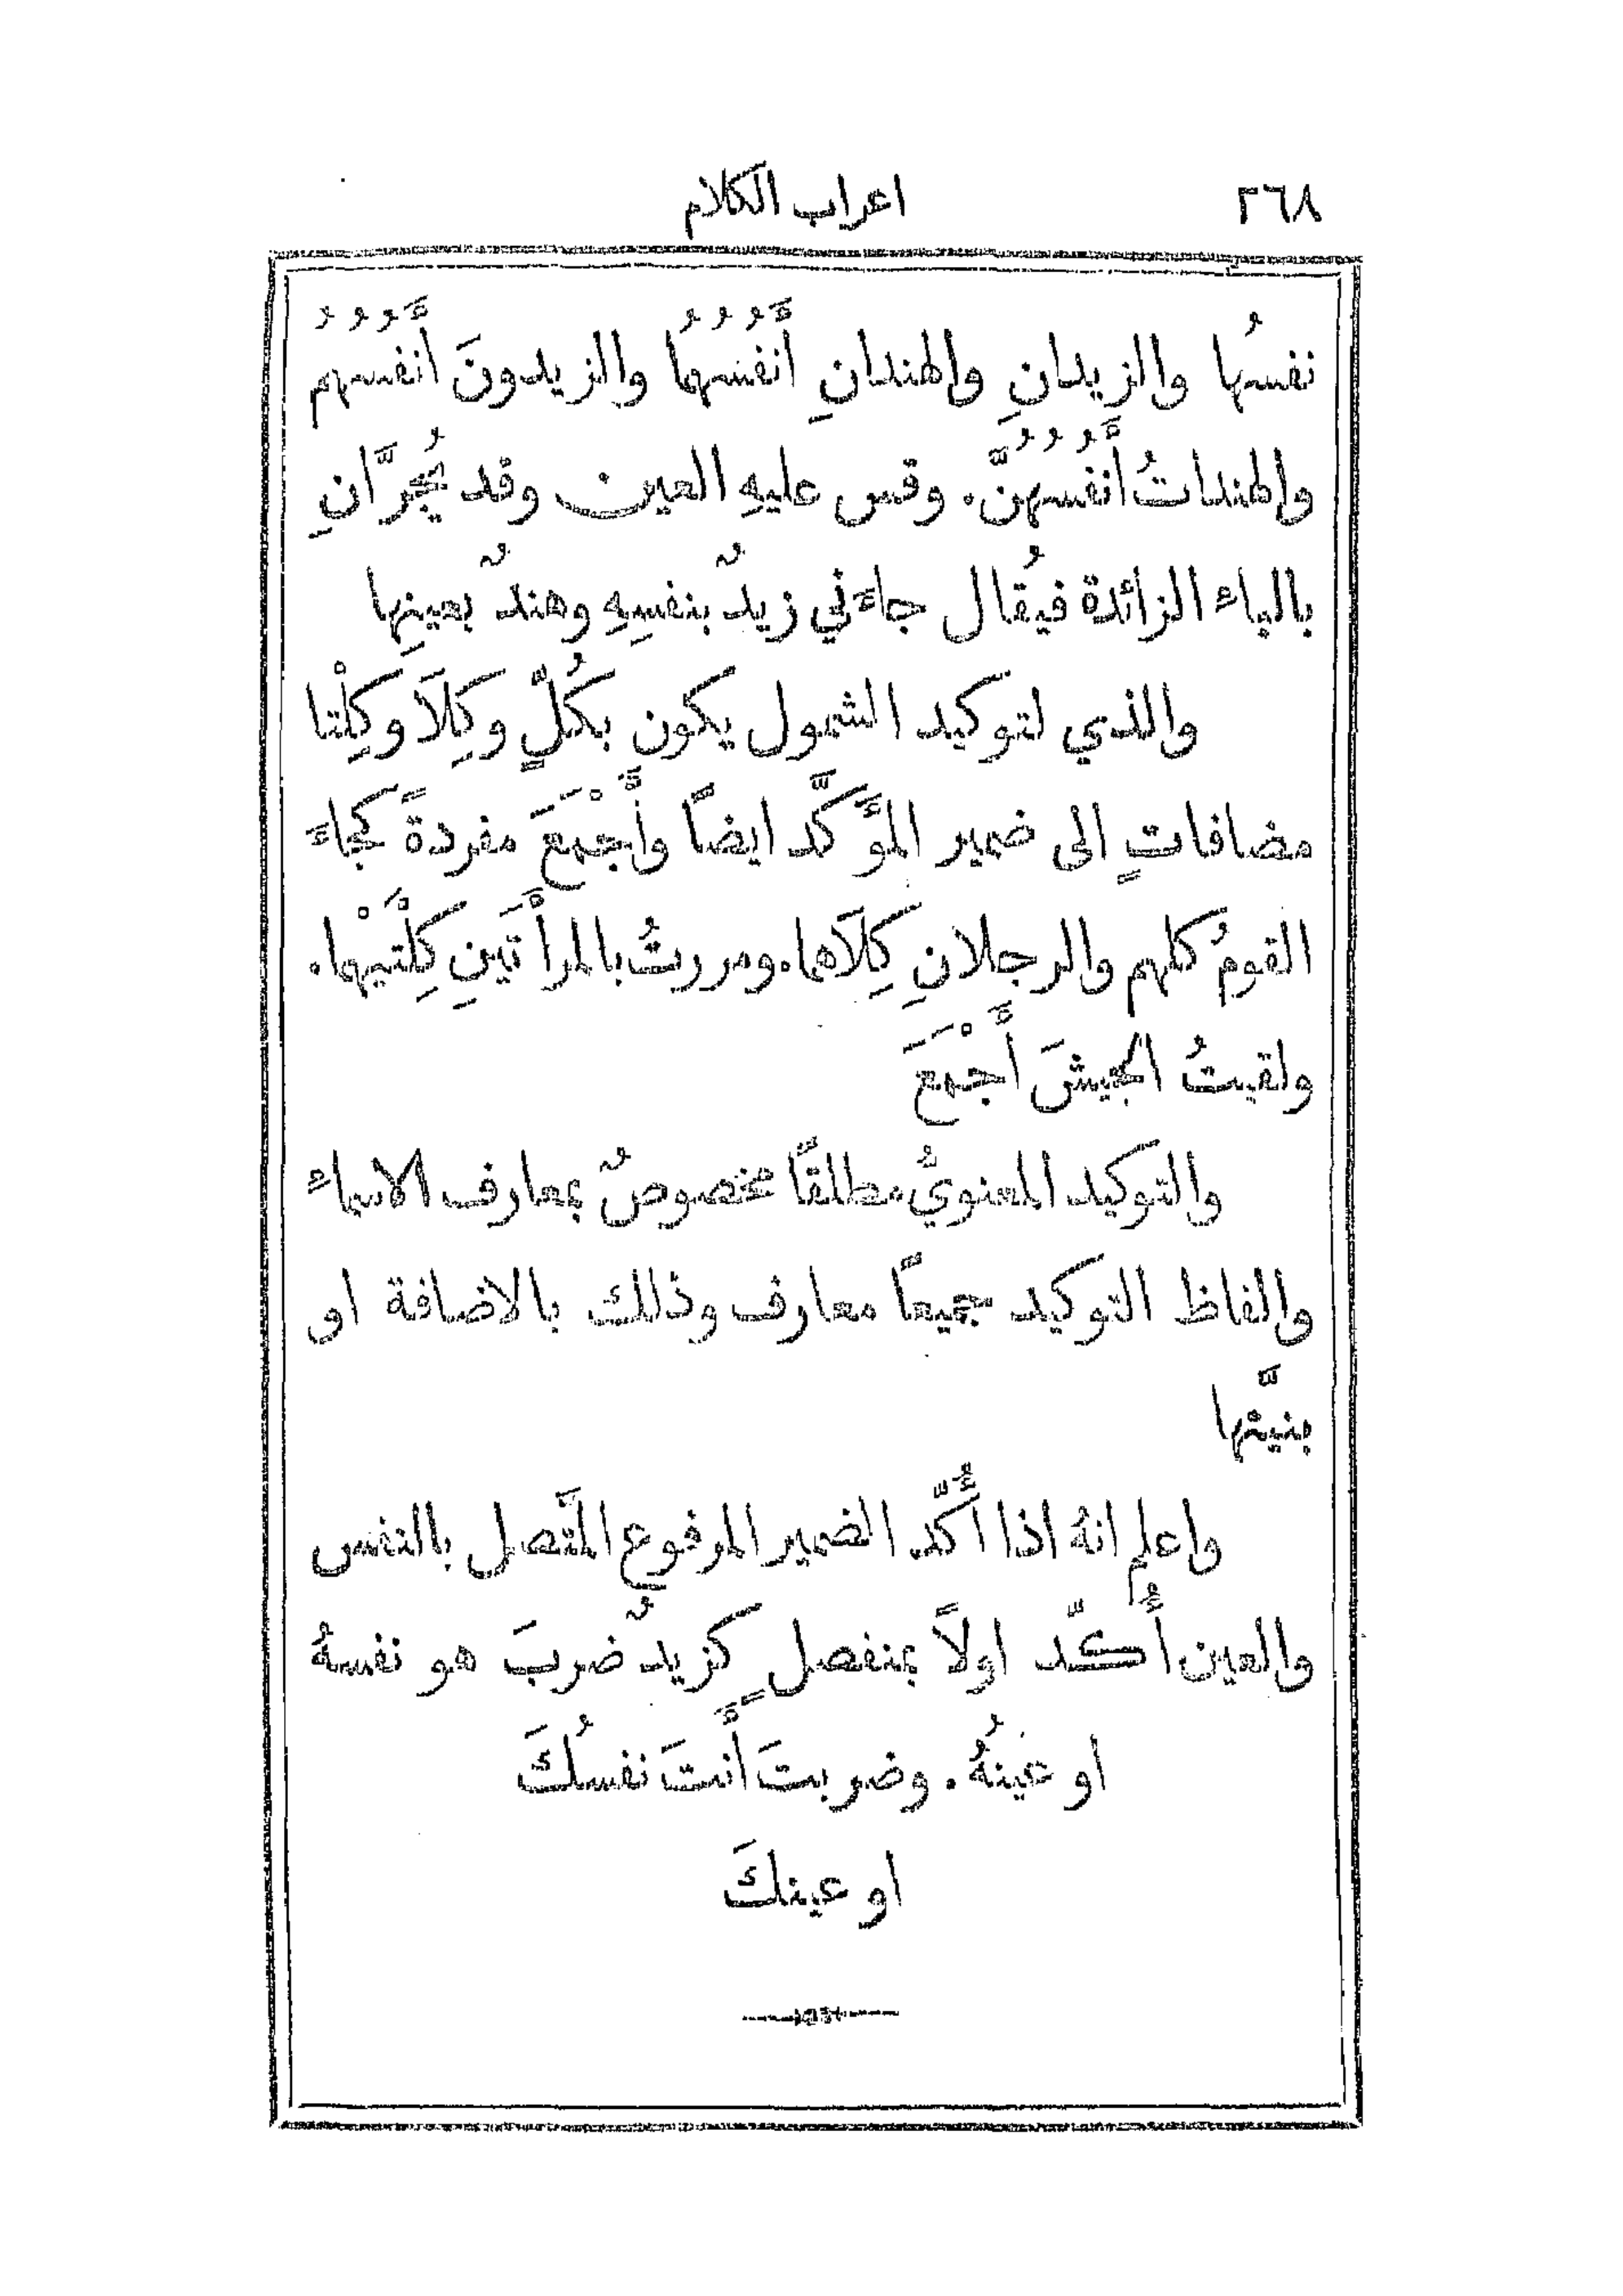 ٢٦٨ اعراب الكلام
نفسُها والزيدانِ والهندانِ أَنفُسُهُما والزيدونَ أَنفُسُهُمُ
والهنداتُ أَنفُسُهُنَّ. وقس عليهِ العين وقد يُجرَّانِ
بالباء الزائدة فيُقال جاءَني زيدٌ بنفسِهِ وهندٌ بعينِها
والذي لتوكيد الشمول يكون بكُلٍّ وكِلَا وكِلْتا
مضافاتٍ الى ضمير المؤَكَّد ايضاً وأَجْمَعَ مفردةً كجاءَ
القومُ كلهم والرجلانِ كِلَاهما. ومررتُ بالمرأَتَينِ كِلْتَيْهما.
ولقيتُ الجيشَ أَجْمَعَ
والتوكيد المعنويُّ مطلقاً مخصوصٌ بمعارف الاسماء
والفاظ التوكيد جميعاً معارف وذلك بالاضافة او
بنيَّتها
واعلم انهُ اذا أُكِّد الضمير المرفوع المتَّصل بالنفس
والعين أُكِّد اولاً بمنفصلٍ كزيدٌ ضربَ هو نفسهُ
او عَينهُ. وضربتَ أَنتَ نفسُكَ
او عينكَ